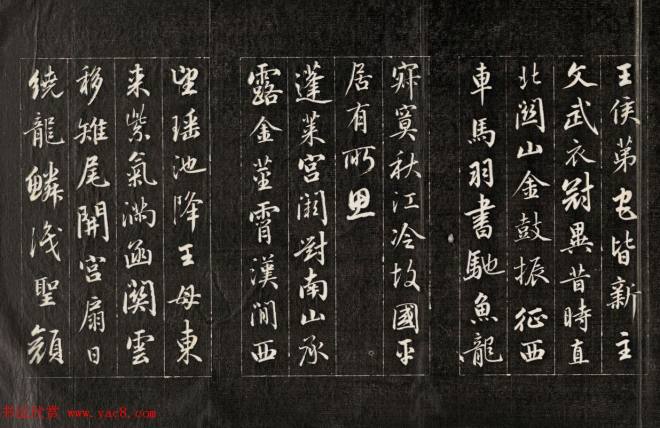 王侯第宅皆新主
文武衣冠異昔時直
北關山金鼓振征西
車馬羽書馳魚龍
寂寞秋江冷故國平
居有所思
蓬萊宮闕對南山承
露金莖霄漢間西
望瑤池降王母東
來紫氣滿函關雲
移雉尾開宮扇日
繞龍鱗識聖顏
书法欣赏 www.yac8.com